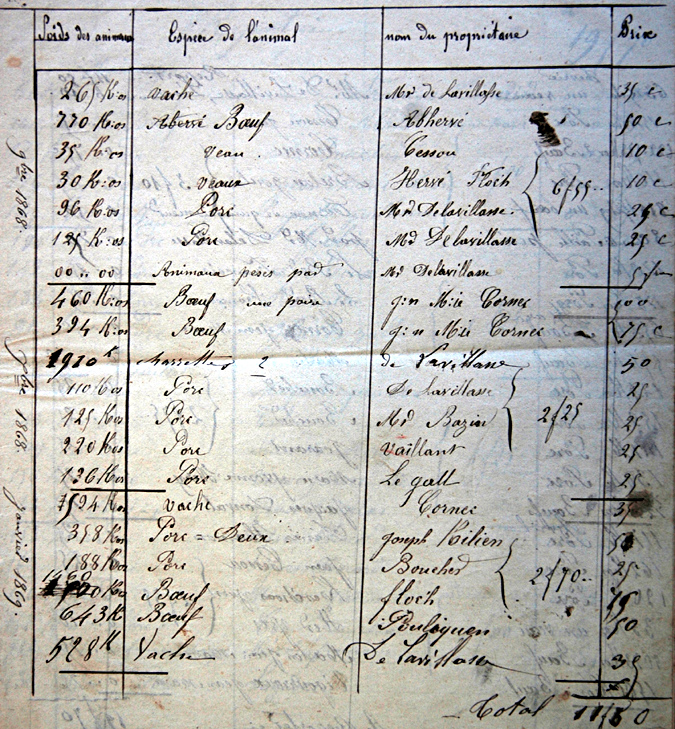 Poids des animaux Espèce de l'animal nom du propriétaire Prix
265 K:os vache Mr de Lavillasse 35 c
770 K:os Abervé Bœuf Abhervé 50 c
35 K:os veau. Cessou 10 c
30 K:os veaux Hervé Floch 10 c
6/55..
96 K:os Porc Mr Delavillasse. 25 c
125 K:os Porc Mr Delavillasse 25 c
00..00 Animaux pesés pad Mr Delavillasse
460 K:os Bœuf une paire Cornec 100
394 K:os Bœuf Cornec 75 c
9bre 1868.
1910 K charrettes 2 de Lavillasse 50
110 Kos Porc De Lavillasse 25
125 Kos Porc Mr Bazin 25
2/25
220 Kos Porc Vaillant 25
136 Kos Porc Le gall 25
xbre 1868
594 Kos vache Cornec 35
358 Kos Porc = Deux joseph Kilien 50
188 Kos Porc Boucher 25
2/70..
Kos Bœuf floch 75
643 K Bœuf Pouliquen 50
janvier 1869.
528 K Vache De Lavillasse
Total 11/50